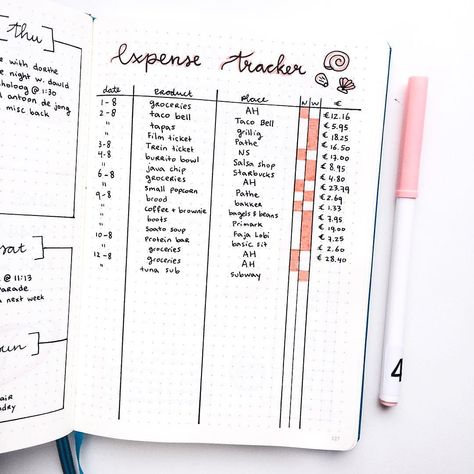 thu
e with dorthe
e night w. david
choloog @ 1:30
d antoon de jong
misc back
sat
@ 11:13
parade
n next week
sun
air
ndry
Expense tracker
date product place N W €
1-8 groceries AH € 12.16
2-8 taco bell Taco Bell € 5.95
" tapas grillig € 18.25
" Film ticket Pathe € 16.50
3-8 Trein ticket NS € 17.00
4-8 burrito bowl Salsa shop € 8.95
" java chip Starbucks € 4.80
6-8 groceries AH € 23.79
" small popcorn Pathe € 2.69
9-8 brood bakker € 1.33
" coffee + brownie bagels & beans € 7.95
" boots Primark € 19.00
10-8 Soato soup Faja Lobi € 7.25
" Protein bar basic fit € 2.60
12-8 groceries AH € 28.40
groceries AH
" tuna sub subway
127
4